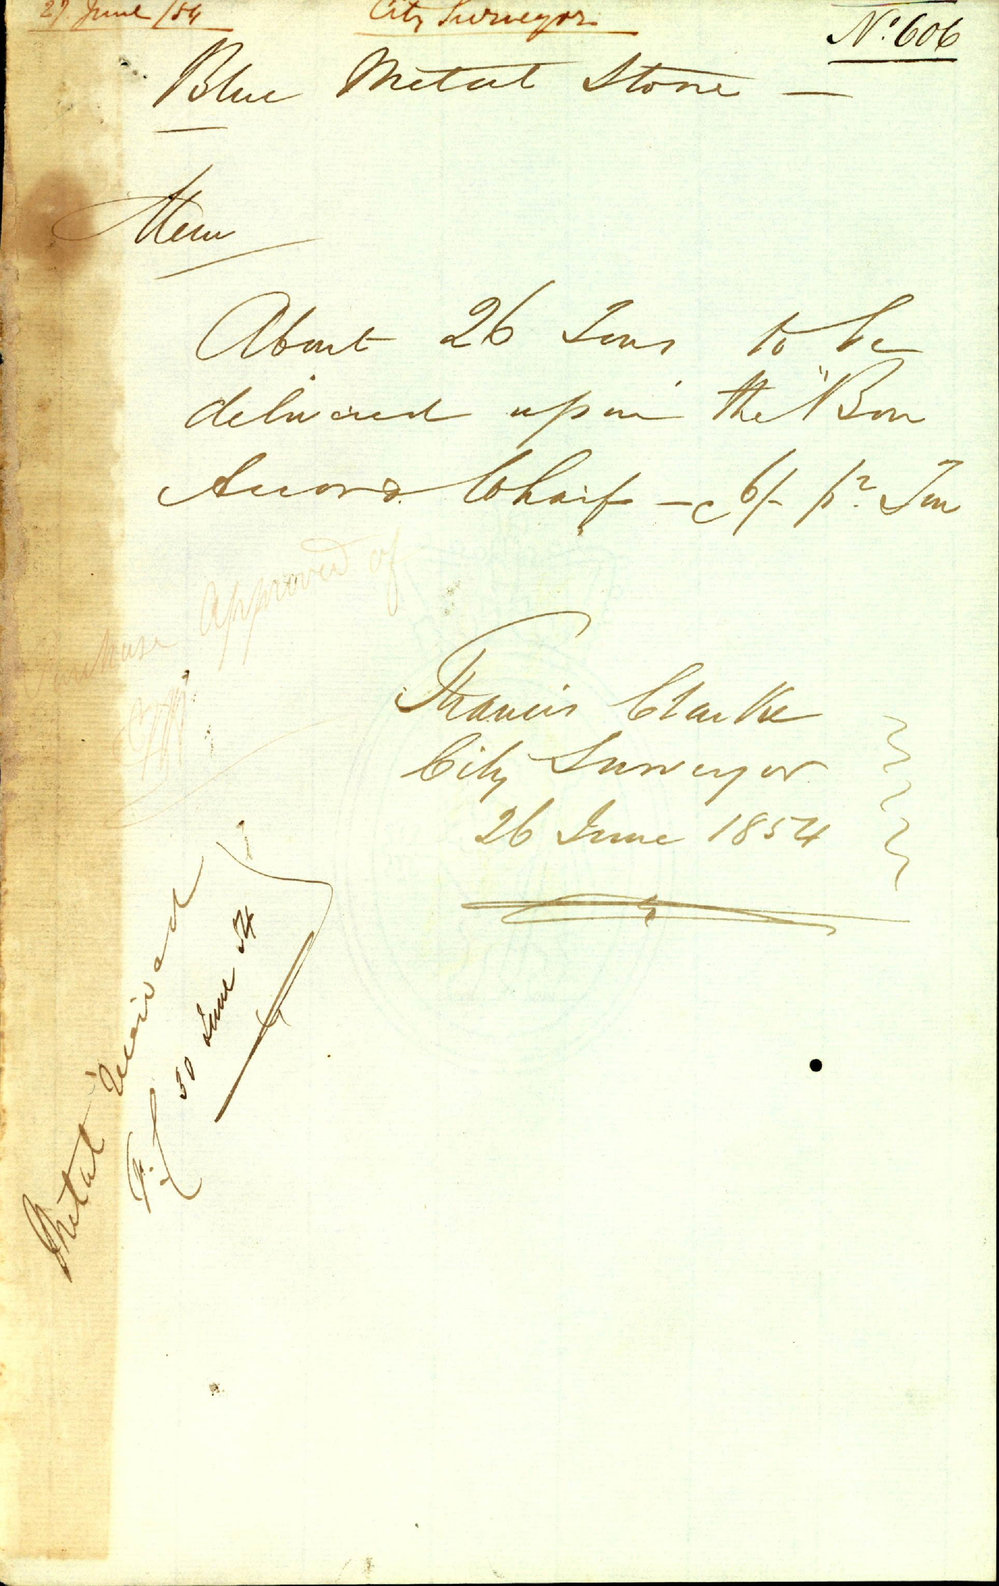 27 June /54
City Surveyor
No. 606
Blue Metal Stone —
Mem
About 26 Tons to be
delivered upon the "Bon
Accord Wharf — @ 6/- pr. Ton
Purchase Approved of
Francis Clarke
City Surveyor
26 June 1854
Metal received
F. C
30 June 54